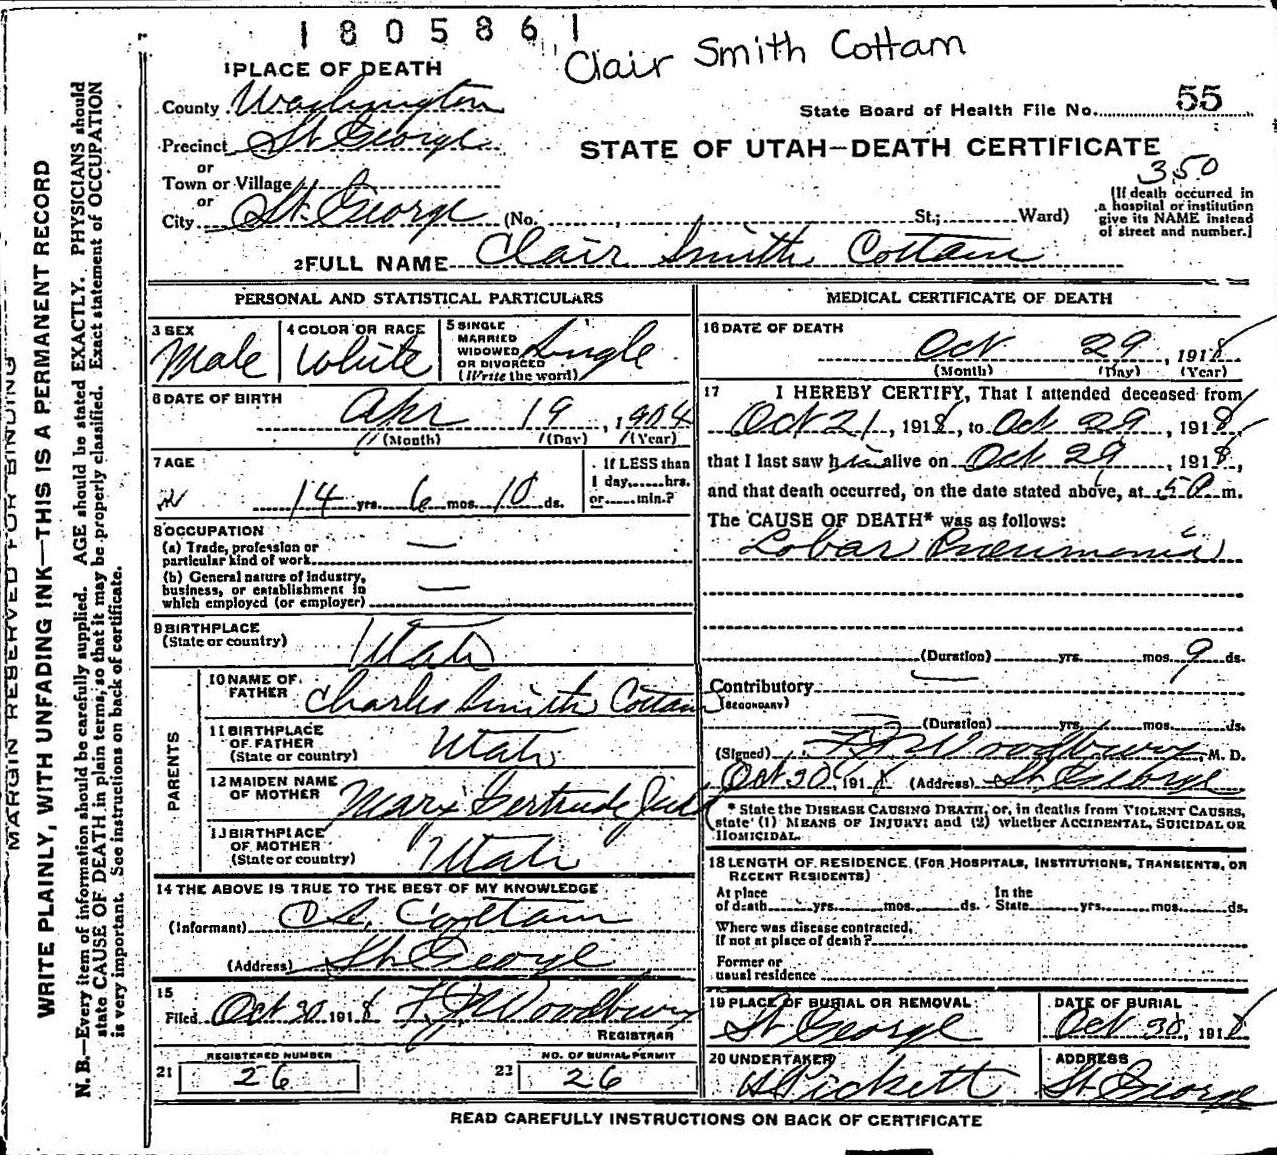 1805861
Clair Smith Cottam
1 PLACE OF DEATH
County Washington
State Board of Health File No. 55
Precinct St George
STATE OF UTAH—DEATH CERTIFICATE
or
Town or Village
350
or
City St. George (No. St.; Ward)
(If death occurred in
a hospital or institution
give its NAME instead
of street and number.)
2 FULL NAME Clair Smith Cottam
PERSONAL AND STATISTICAL PARTICULARS
3 SEX
Male
4 COLOR OR RACE
White
5 SINGLE
MARRIED
WIDOWED
OR DIVORCED
(Write the word)
Single
6 DATE OF BIRTH
Apr 19, 1904
(Month) (Day) (Year)
7 AGE
14 yrs. 6 mos. 10 ds.
If LESS than
1 day, hrs.
or min.?
8 OCCUPATION
(a) Trade, profession or
particular kind of work —
(b) General nature of industry,
business, or establishment in
which employed (or employer) —
9 BIRTHPLACE
(State or country) Utah
PARENTS
10 NAME OF
FATHER Charles Smith Cottam
11 BIRTHPLACE
OF FATHER
(State or country) Utah
12 MAIDEN NAME
OF MOTHER Mary Gertrude
13 BIRTHPLACE
OF MOTHER
(State or country) Utah
14 THE ABOVE IS TRUE TO THE BEST OF MY KNOWLEDGE
(Informant) Cottam
(Address) St George
15
Filed Oct 30 1918 F J Woodbury
REGISTRAR
REGISTERED NUMBER
21 26
NO. OF BURIAL PERMIT
22 26
MEDICAL CERTIFICATE OF DEATH
16 DATE OF DEATH
Oct 29, 1918
(Month) (Day) (Year)
17 I HEREBY CERTIFY, That I attended deceased from
Oct 21, 1918, to Oct 29, 1918,
that I last saw him alive on Oct 29, 1918,
and that death occurred, on the date stated above, at m.
The CAUSE OF DEATH* was as follows:
Lobar Pneumonia
(Duration) yrs. mos. 9 ds.
Contributory —
(SECONDARY)
(Duration) yrs. mos. ds.
(Signed) F J Woodbury, M. D.
Oct 30, 1918 (Address) St George
* State the DISEASE CAUSING DEATH, or, in deaths from VIOLENT CAUSES,
state (1) MEANS OF INJURY; and (2) whether ACCIDENTAL, SUICIDAL OR
HOMICIDAL.
18 LENGTH OF RESIDENCE (FOR HOSPITALS, INSTITUTIONS, TRANSIENTS, OR
RECENT RESIDENTS)
At place
of death yrs. mos. ds. In the
State yrs. mos. ds.
Where was disease contracted,
if not at place of death?
Former or
usual residence
19 PLACE OF BURIAL OR REMOVAL
St George
DATE OF BURIAL
Oct 30, 1918
20 UNDERTAKER
Pickett
ADDRESS
St George
READ CAREFULLY INSTRUCTIONS ON BACK OF CERTIFICATE
MARGIN RESERVED FOR BINDING
WRITE PLAINLY, WITH UNFADING INK—THIS IS A PERMANENT RECORD
N. B.—Every item of information should be carefully supplied. AGE should be stated EXACTLY. PHYSICIANS should
state CAUSE OF DEATH in plain terms, so that it may be properly classified. Exact statement of OCCUPATION
is very important. See instructions on back of certificate.